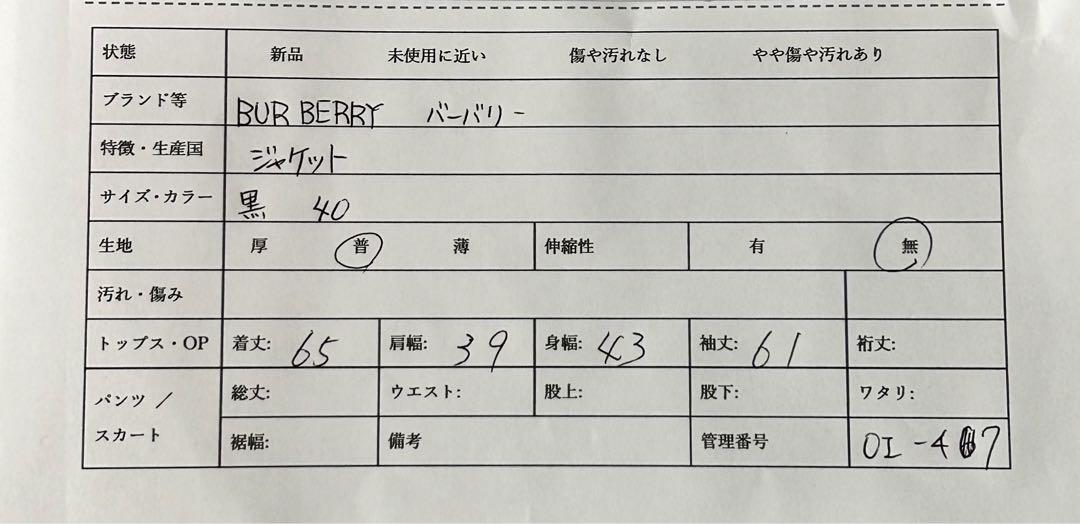 状態 新品 未使用に近い 傷や汚れなし やや傷や汚れあり
ブランド等 BURBERRY バーバリー
特徴・生産国 ジャケット
サイズ・カラー 黒 40
生地 厚 普 薄 伸縮性 有 無
汚れ・傷み
トップス・OP 着丈: 65 肩幅: 39 身幅: 43 袖丈: 61 裄丈:
パンツ ／ 総丈: ウエスト: 股上: 股下: ワタリ:
スカート 裾幅: 備考 管理番号